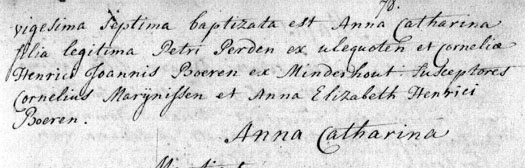 vigesima septima baptizata est Anna Catharina
filia legitima Petri Perden ex uleguoten et Corneliæ
Henrici Joannis Boeren ex Minderhout Susceptores
Cornelius Marÿnissen et Anna Elizabeth Henrici
Boeren.
Anna Catharina